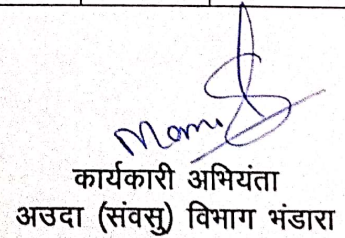 कार्यकारी अभियंता
अउदा (संवसु) विभाग भंडारा